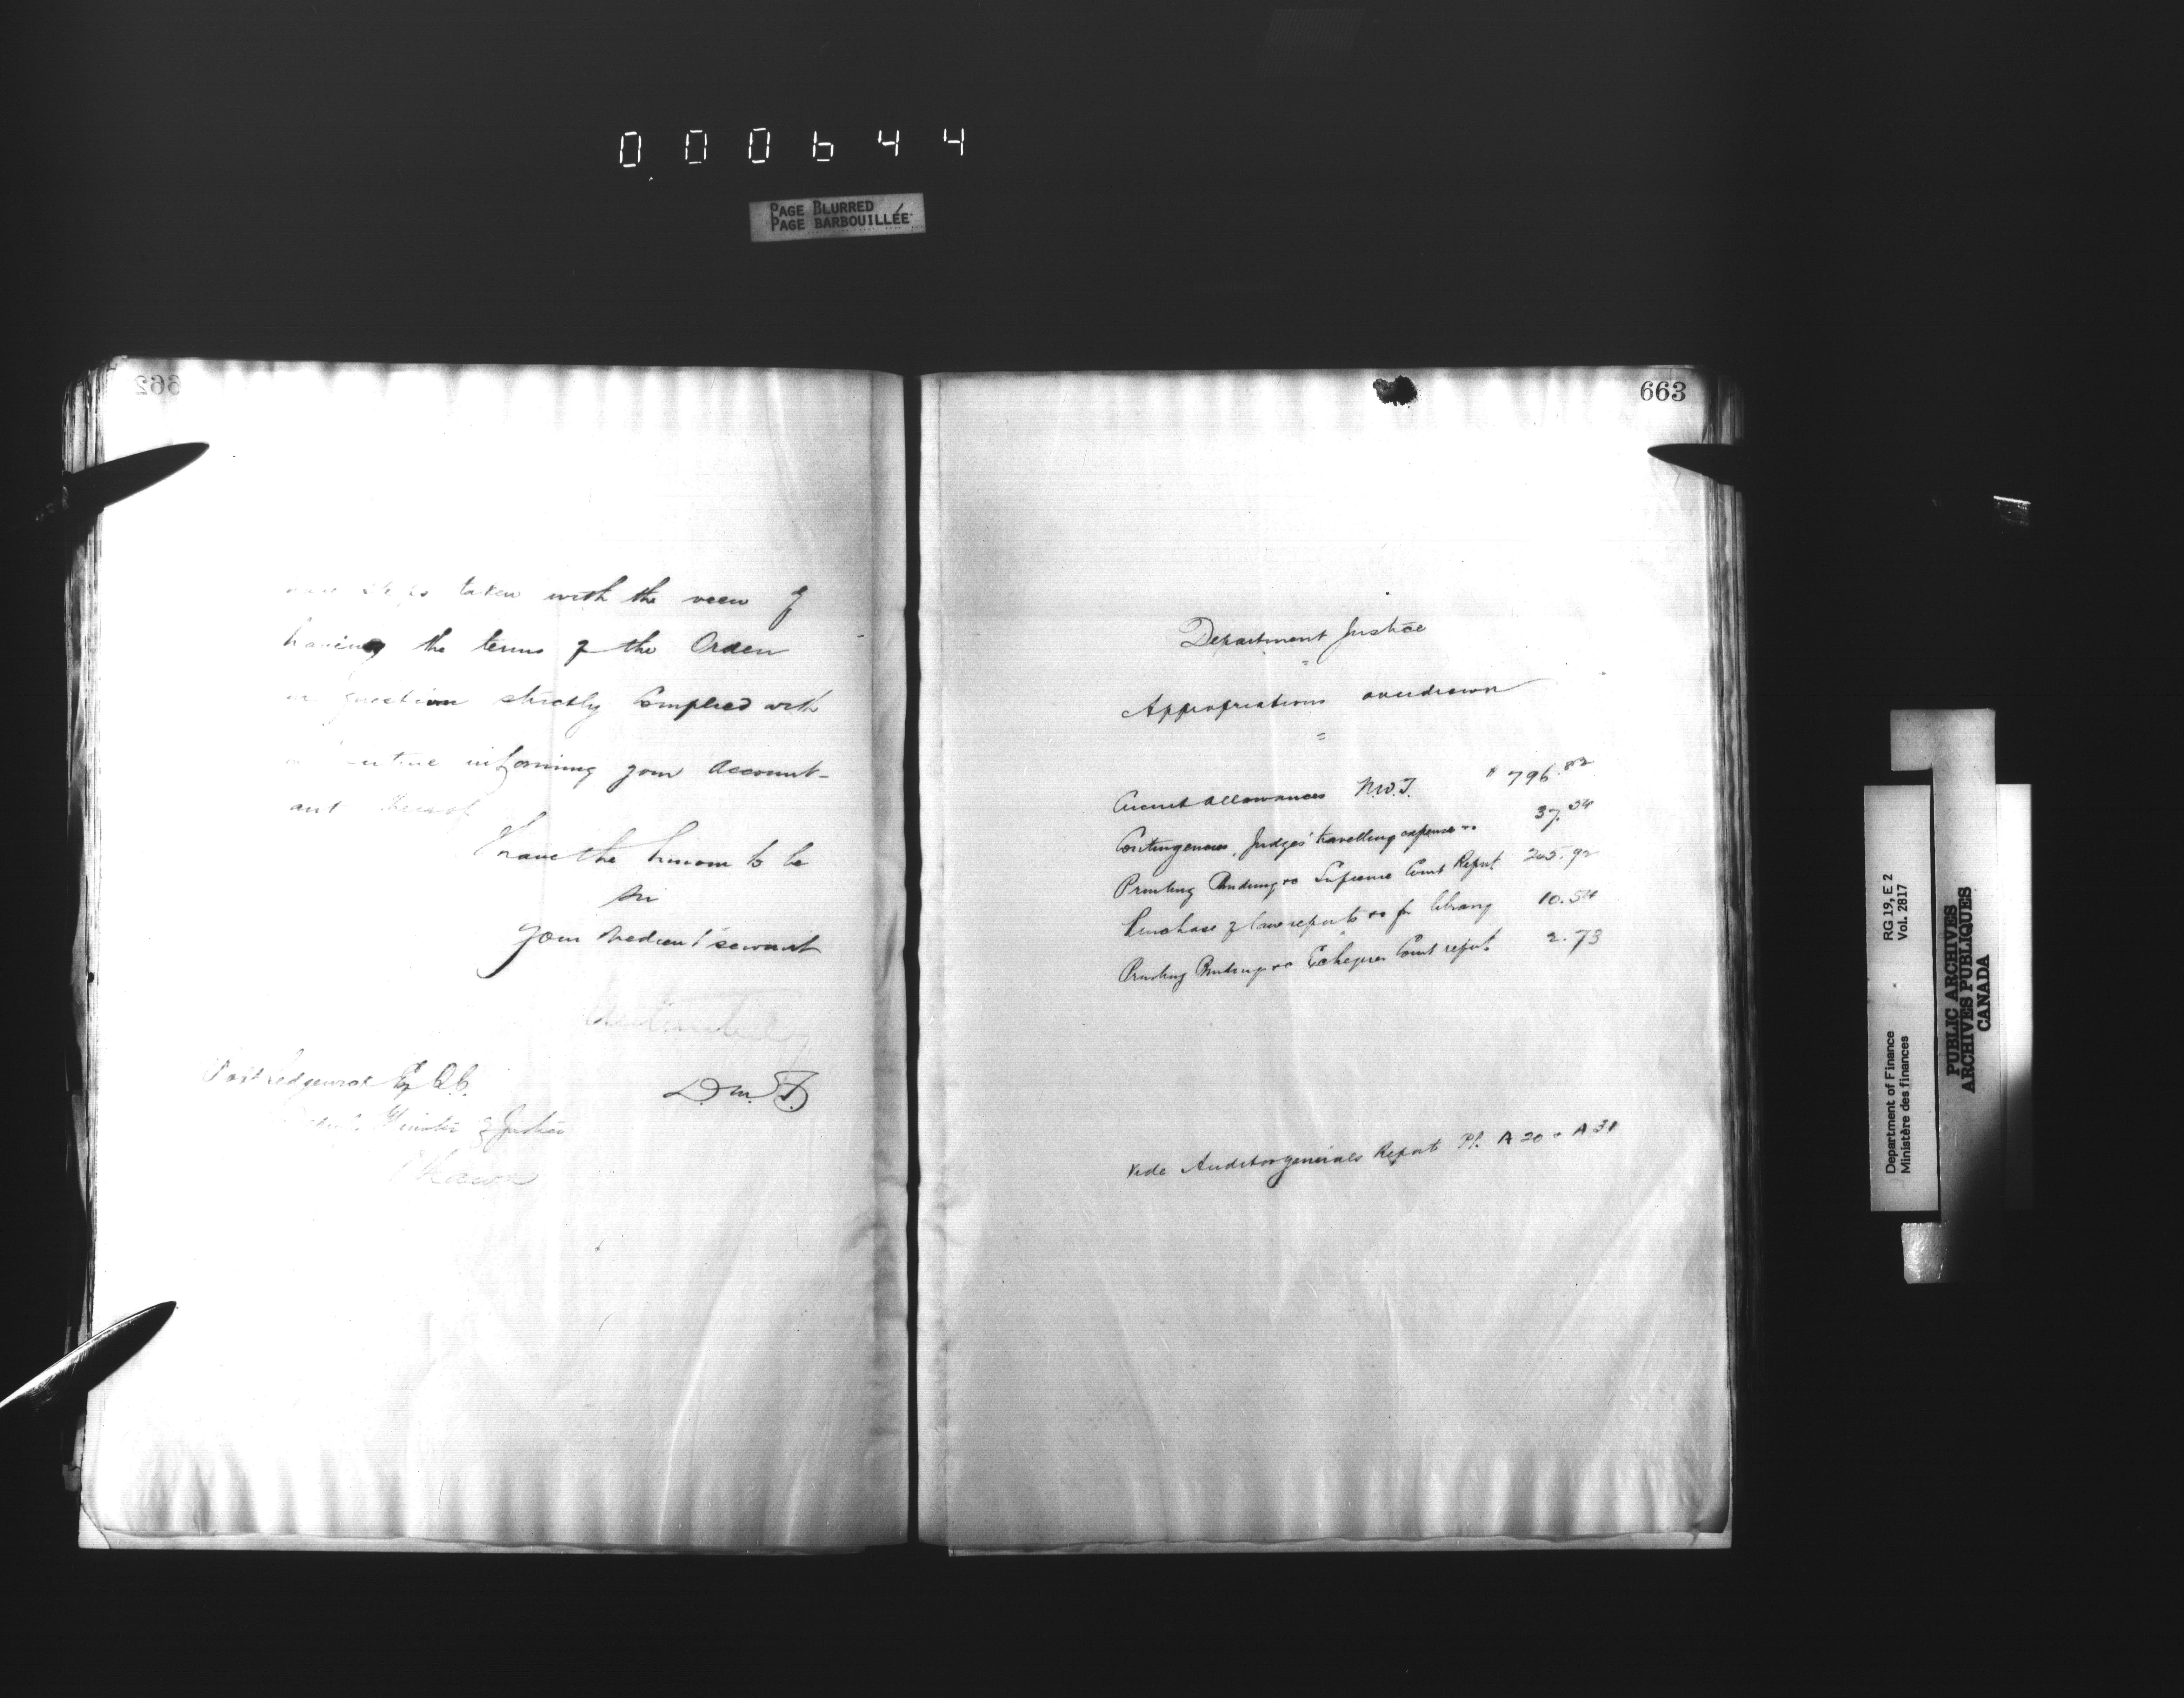 000644
PAGE BLURRED
PAGE BARBOUILLÉE
662
steps taken with the view of
having the terms of the Order
in question strictly Complied with
informing your Account-
ant thereof
I have the honor to be
Sir
Your obedient servant
D.M.F.
Robt Sedgewick Esq Q.C.
Deputy Minister of Justice
Ottawa
663
Department Justice
Appropriations overdrawn
Circuit allowances N.W.T. $ 796.82
Contingencies, Judges' travelling expenses &c 37.34
Printing Binding &c Supreme Court Report 205.92
Purchase of law reports &c for library 10.54
Printing Binding &c Exchequer Court report 2.73
Vide Auditor generals Report Pp. A 20 & A 31
Department of Finance RG 19, E 2
Ministère des finances Vol. 2817
PUBLIC ARCHIVES
ARCHIVES PUBLIQUES
CANADA